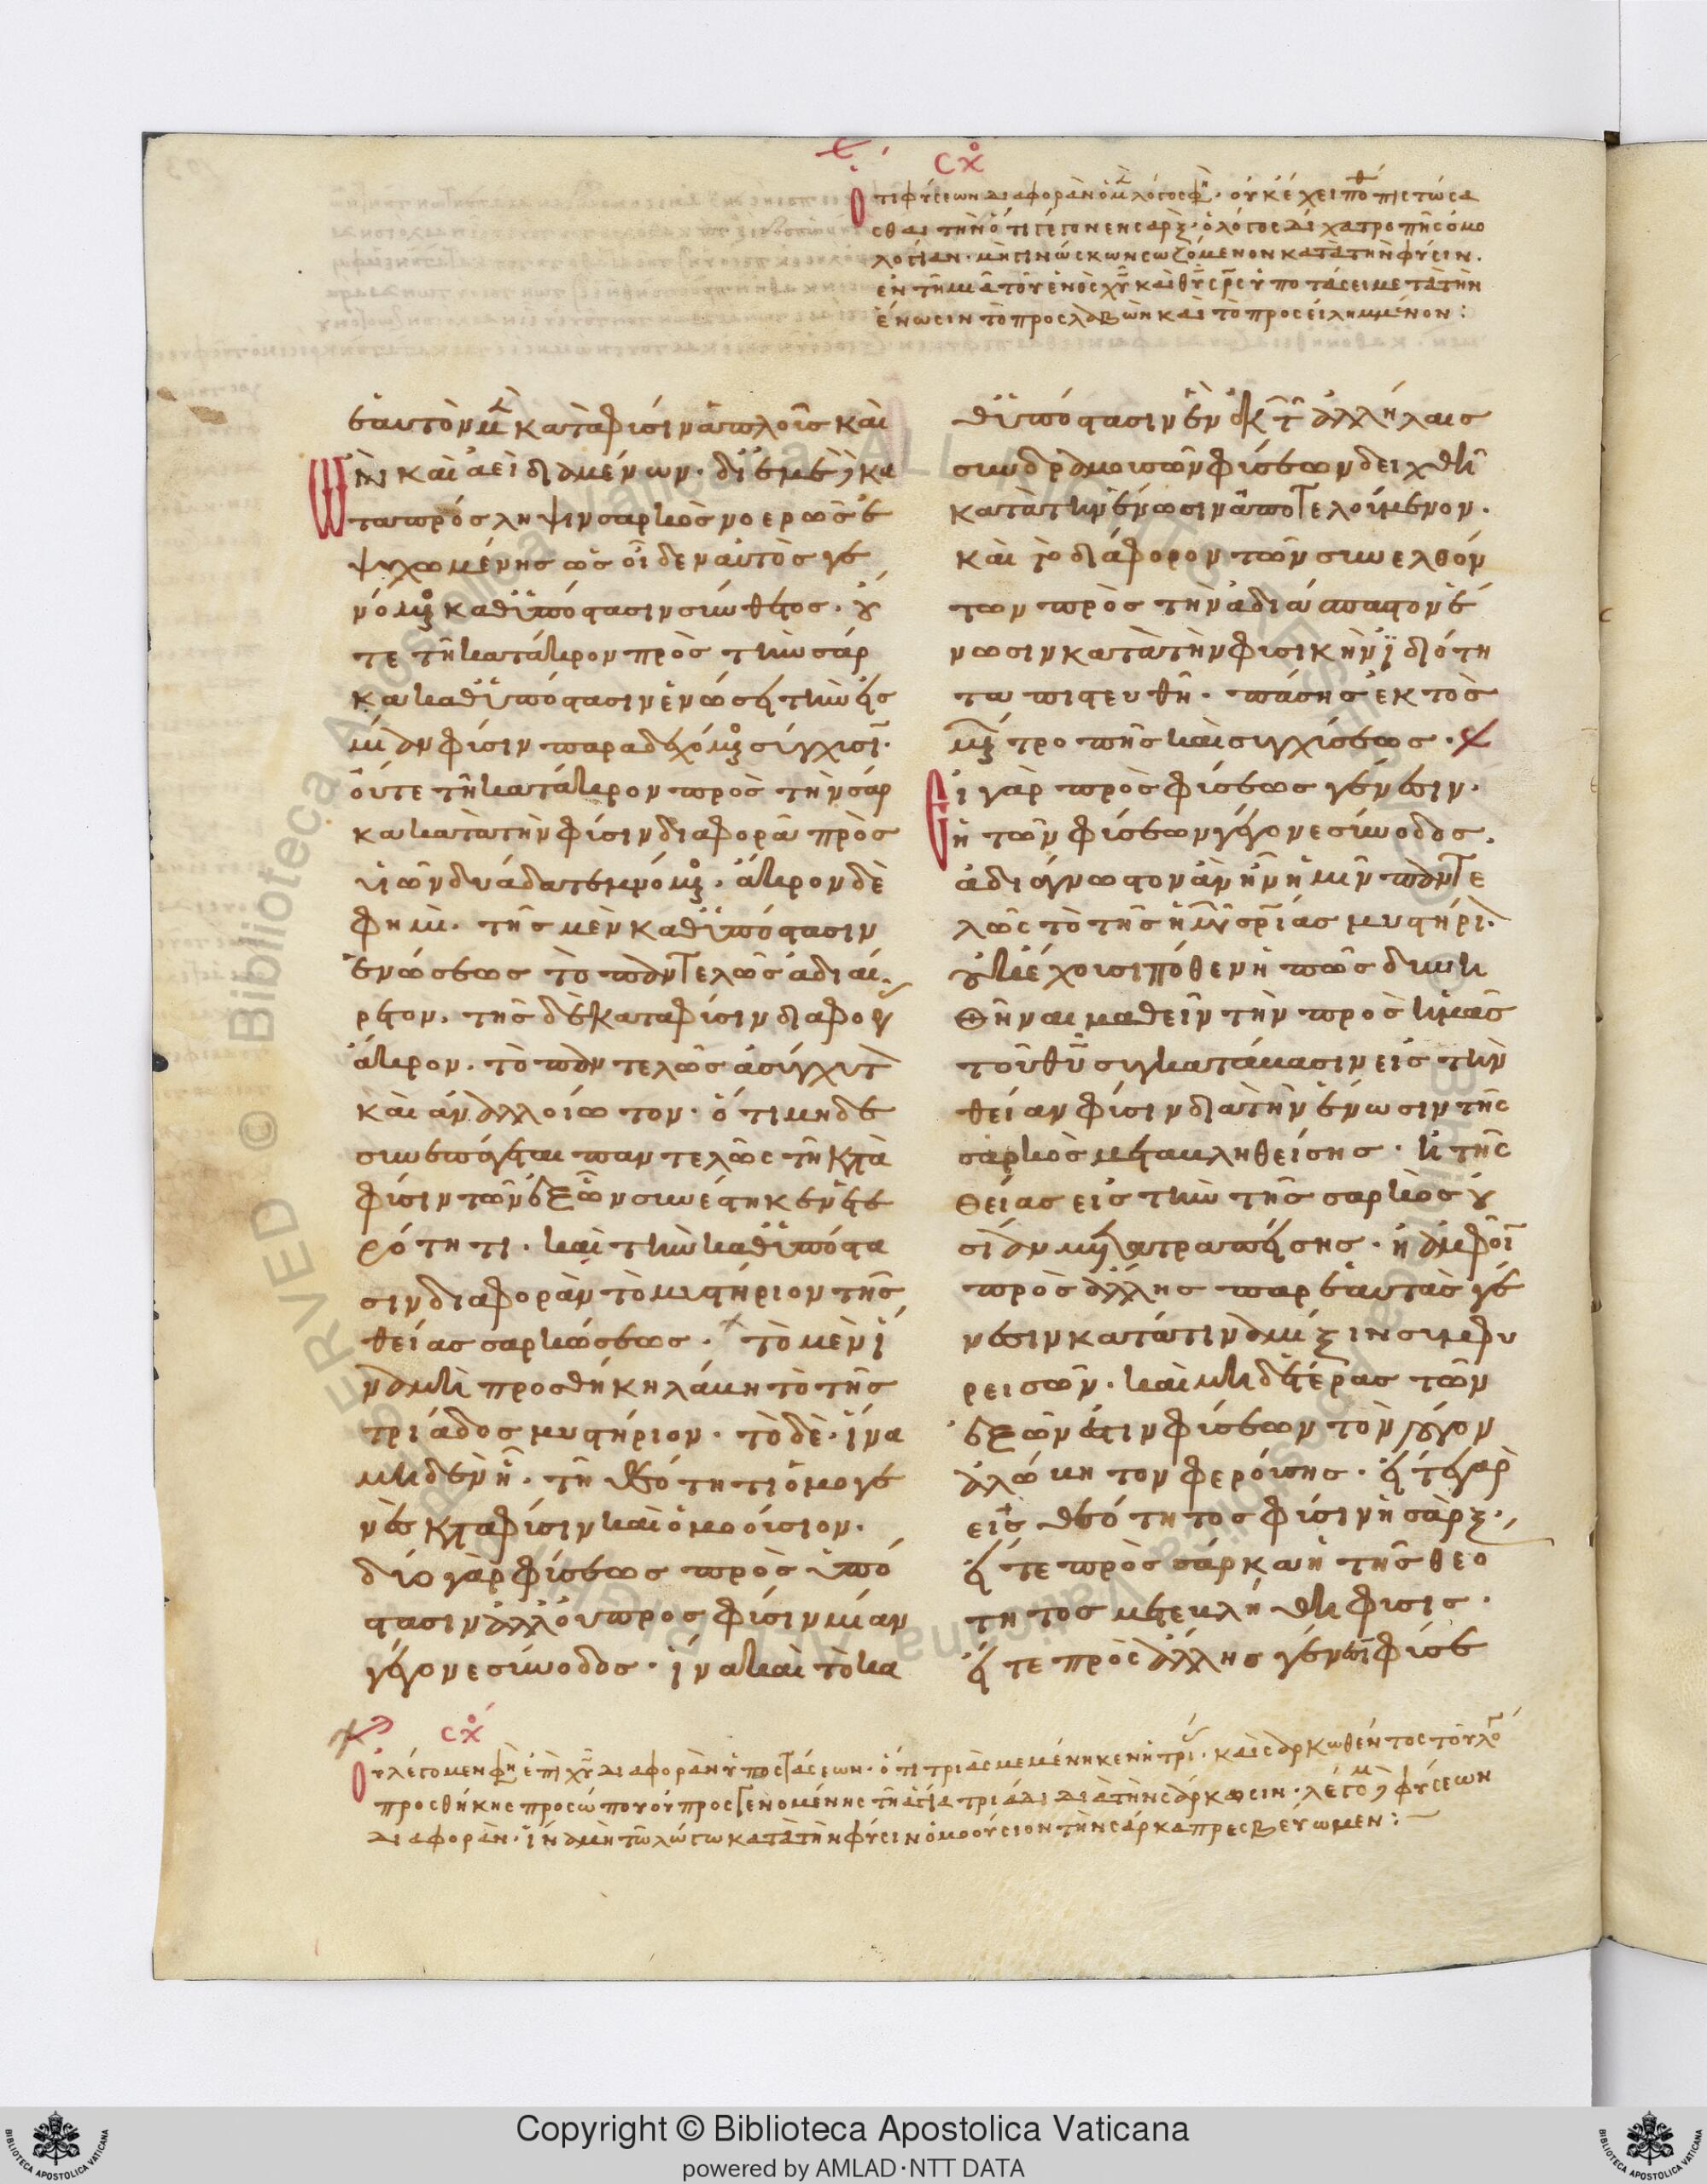 σχο
Ὅτι φύσεων διαφορὰν ὁ μὴ λόγος φὴ. οὐκ ἔχει πόθ πιστώσα
σθαι τὴν ὅτι γέγονεν σὰρξ. ὁ λόγος δίχα τροπῆς ὁμο
λογίαν. μὴ γινώσκων σωζόμενον κατὰ τὴν φύσιν.
ἐν τῆ μιᾶ τοῦ ἑνὸς χυ καὶ θυ σρς ὑποστάσει μετὰ τὴν
ἕνωσιν τὸ προσλαβὼν καὶ τὸ προσειλημμένον:
ἑαυτὸν μὲν κατὰ φύσιν ἁπλοῖς καὶ
ὢν καὶ ἀεὶ διαμένων. δυσμενῆ κα
τὰ πρόσληψιν σαρκὸς νοερῶς ἐ
ψυχωμένης ὡς οἶδεν αὐτὸς γε
νόμενος καθ ὑπόστασιν σύνθετος. οὔ
τε τῆ κατάκρον πρὸς τὴν σάρ
κα καθ ὑπόστασιν ἑνώσει τὴν εἰς
μίαν φύσιν παραδεχόμενος σύγχυσιν.
οὔτε τῆ κατάκρον πρὸς τὴν σάρ
κα κατὰ τὴν φύσιν διαφορᾶ πρὸς
υἱῶν δυάδα τεμνόμενος. ἄκρον δὲ
φημὶ. τῆς μὲν καθ ὑπόστασιν
ἑνώσεως τὸ παντελῶς ἀδιαί
ρετον. τῆς δὲ κατα φύσιν διαφορᾶς
ἄκρον. τὸ παντελῶς ἀσύγχυτον
καὶ ἀναλλοίωτον. ὅτι μηδὲ
συνεπάγεται παντελῶς τῆ κατὰ
φύσιν τῶν ἐξ ὧν συνέστηκεν ἑτε
ρότητι. καὶ τὴν καθ ὑπόστα
σιν διαφορὰν τὸ μυστήριον τῆς
θείας σαρκώσεως. τὸ μὲν ἵ
να μὴ προσθήκην λάβη τὸ τῆς
τριάδος μυστήριον. τὸ δὲ. ἵνα
μηδὲν ἦ. τῆ θεότητι ὁμογε
νὲς κατα φύσιν καὶ ὁμοούσιον.
δύο γὰρ φύσεως πρὸς ὑπό
στασιν ἀλλ οὐ προς φύσιν μίαν
γέγονε σύνοδος. ἵνα καὶ τὸ κα
θ ὑπόστασιν ἓν ἐκ τῶν ἀλλήλαις
συνδραμουσῶν φύσεων δειχθῆ
κατὰ τὴν ἕνωσιν ἀποτελούμενον.
καὶ τὸ διάφορον τῶν συνελθόν
των πρὸς τὴν ἀδιάσπαστον ἕ
νωσιν κατὰ τὴν φυσικὴν ἰδιότη
τα πιστευθῆ. πάσης ἐκτὸς
μένον τροπῆς καὶ συγχύσεως.
Εἰ γὰρ πρὸς φύσεως γένεσιν.
ἡ τῶν φύσεων γέγονε σύνοδος.
ἀδιάγνωστον ἂν ἦν ἡμῖν παντε
λῶς τὸ τῆς ἡμῶν σριάς μυστήριον.
οὐκ ἔχουσι πόθεν ἢ πῶς δυνη
θῆναι μαθεῖν τὴν πρὸς ἡμᾶς
τοῦ θυ συγκατάβασιν εἰς τὴν
θείαν φύσιν διὰ τὴν ἕνωσιν τῆς
σαρκὸς μετακληθείσης. ἢ τῆς
θείας εἰς τὴν τῆς σαρκὸς οὐ
σίαν μετατραπείσης. ἢ ἀμφοῖν
πρὸς ἄλλης παρ ἑαυτὰς γέ
νεσιν κατά τινα μίξιν συμφυ
ρεισῶν. καὶ μηδετέρας τῶν
ἐξ ὧν ἐστιν φύσεων τὸν λόγον
ἀλώβητον φερούσης. εἴτε γὰρ
εἰς θεότητος φύσιν ἡ σὰρξ.
εἴτε πρὸς σάρκα ἡ τῆς θεό
τητος μετεκλήθη φύσις.
εἴτε πρὸς ἄλλης γένεσιν φύσε
σχο
Οὐ λέγομεν φὴ ἐπὶ χυ διαφορὰν ὑποστάσεων. ὅτι τριὰς μεμένηκεν ἡ τριάς. καὶ σαρκωθέντος τοῦ λόγου
προσθήκης προσώπου οὐ προσγενομένης τῆ ἁγία τριάδι διὰ τὴν σάρκωσιν. λέγομεν φύσεων
διαφορὰν. ἵνα μὴ τῶ λόγω κατὰ τὴν φύσιν ὁμοούσιον τὴν σάρκα πρεσβεύωμεν:
Copyright © Biblioteca Apostolica Vaticana
powered by AMLAD·NTT DATA